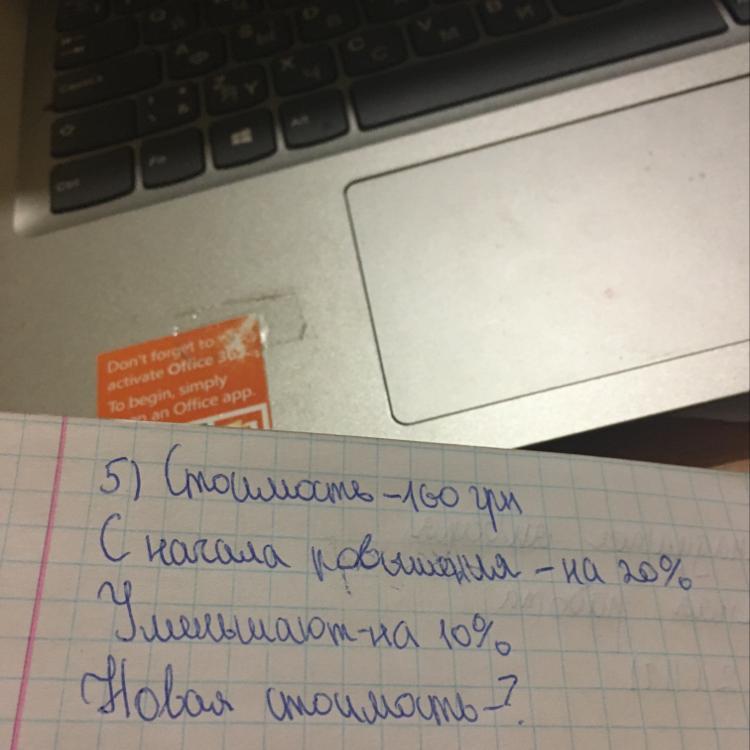 Ctrl
Fn
Alt
Don't forget to
activate Office 365
To begin, simply
an Office app.
5) Стоимость - 160 грн
С начала повышения - на 20%
Уменьшают - на 10%
Новая стоимость - ?